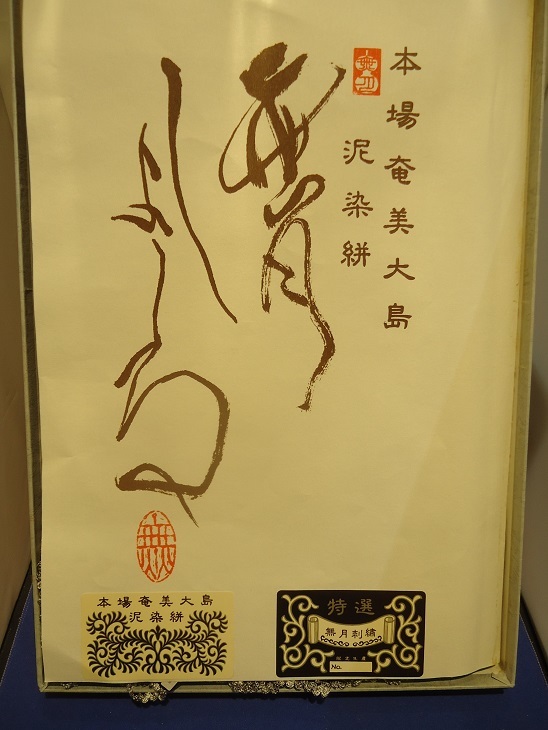 本場奄美大島
泥染絣
無月
本場奄美大島
泥染絣
特選
無月刺繍
No.